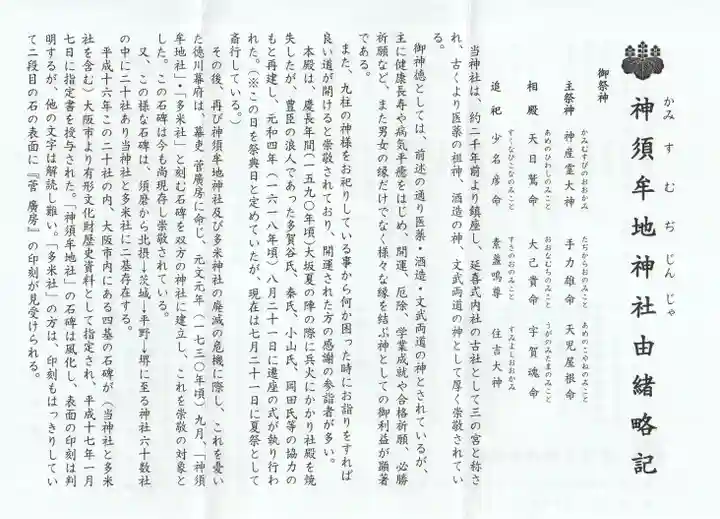 神須牟地神社由緒略記
かみすむぢじんじゃ
御祭神
主祭神 神産霊大神 手力雄命 天児屋根命
かみむすびのおおかみ たぢからおのみこと あめのこやねのみこと
相殿 天日鷲命 大己貴命 宇賀魂命
あめのひわしのみこと おおなむちのみこと うがのみたまのみこと
追祀 少名彦命 素盞嗚尊 住吉大神
すくなひこなのみこと すさのおのみこと すみよしおおかみ
当神社は、約二千年前より鎮座し、延喜式内社の古社として三の宮と称さ
れ、古くより医薬の祖神、酒造の神、文武両道の神として厚く崇敬されてい
る。
御神徳としては、前述の通り医薬・酒造・文武両道の神とされているが、
主に健康長寿や病気平癒をはじめ、開運、厄除、学業成就や合格祈願、必勝
祈願など、また男女の縁だけでなく様々な縁を結ぶ神としての御利益が顕著
である。
また、九柱の神様をお祀りしている事から何か困った時にお詣りをすれば
良い道が開けると崇敬されており、開運された方の感謝の参詣者が多い。
本殿は、慶長年間(一五九〇年頃)大坂夏の陣の際に兵火にかかり社殿を焼
失したが、豊臣の浪人であった多賀谷氏、秦氏、小山氏、岡田氏等の協力の
もと再建し、元和四年(一六一八年頃)八月二十一日に遷座の式が執り行わ
れた。(※この日を祭典日と定めていたが、現在は七月二十一日に夏祭として
斎行している。)
その後、再び神須牟地神社及び多米神社の廃滅の危機に際し、これを憂い
た徳川幕府は、幕吏 菅廣房に命じ、元文元年(一七三〇年頃)九月、「神須
牟地社」・「多米社」と刻む石碑を双方の神社に建立し、これを崇敬の対象と
した。この石碑は今も尚現存し崇敬されている。
又、この様な石碑は、須磨から北摂→茨城→平野→堺に至る神社六十数社
の中に二十社あり当神社と多米社に二基存在する。
平成十六年この二十社の内、大阪市内にある四基の石碑が(当神社と多米
社を含む)大阪市より有形文化財歴史資料として指定され、平成十七年一月
七日に指定書を授与された。「神須牟地社」の石碑は風化し、表面の印刻は判
明するが、他の文字は解読し難い。「多米社」の方は、印刻もはっきりしてい
て二段目の石の表面に『菅 廣房』の印刻が見受けられる。